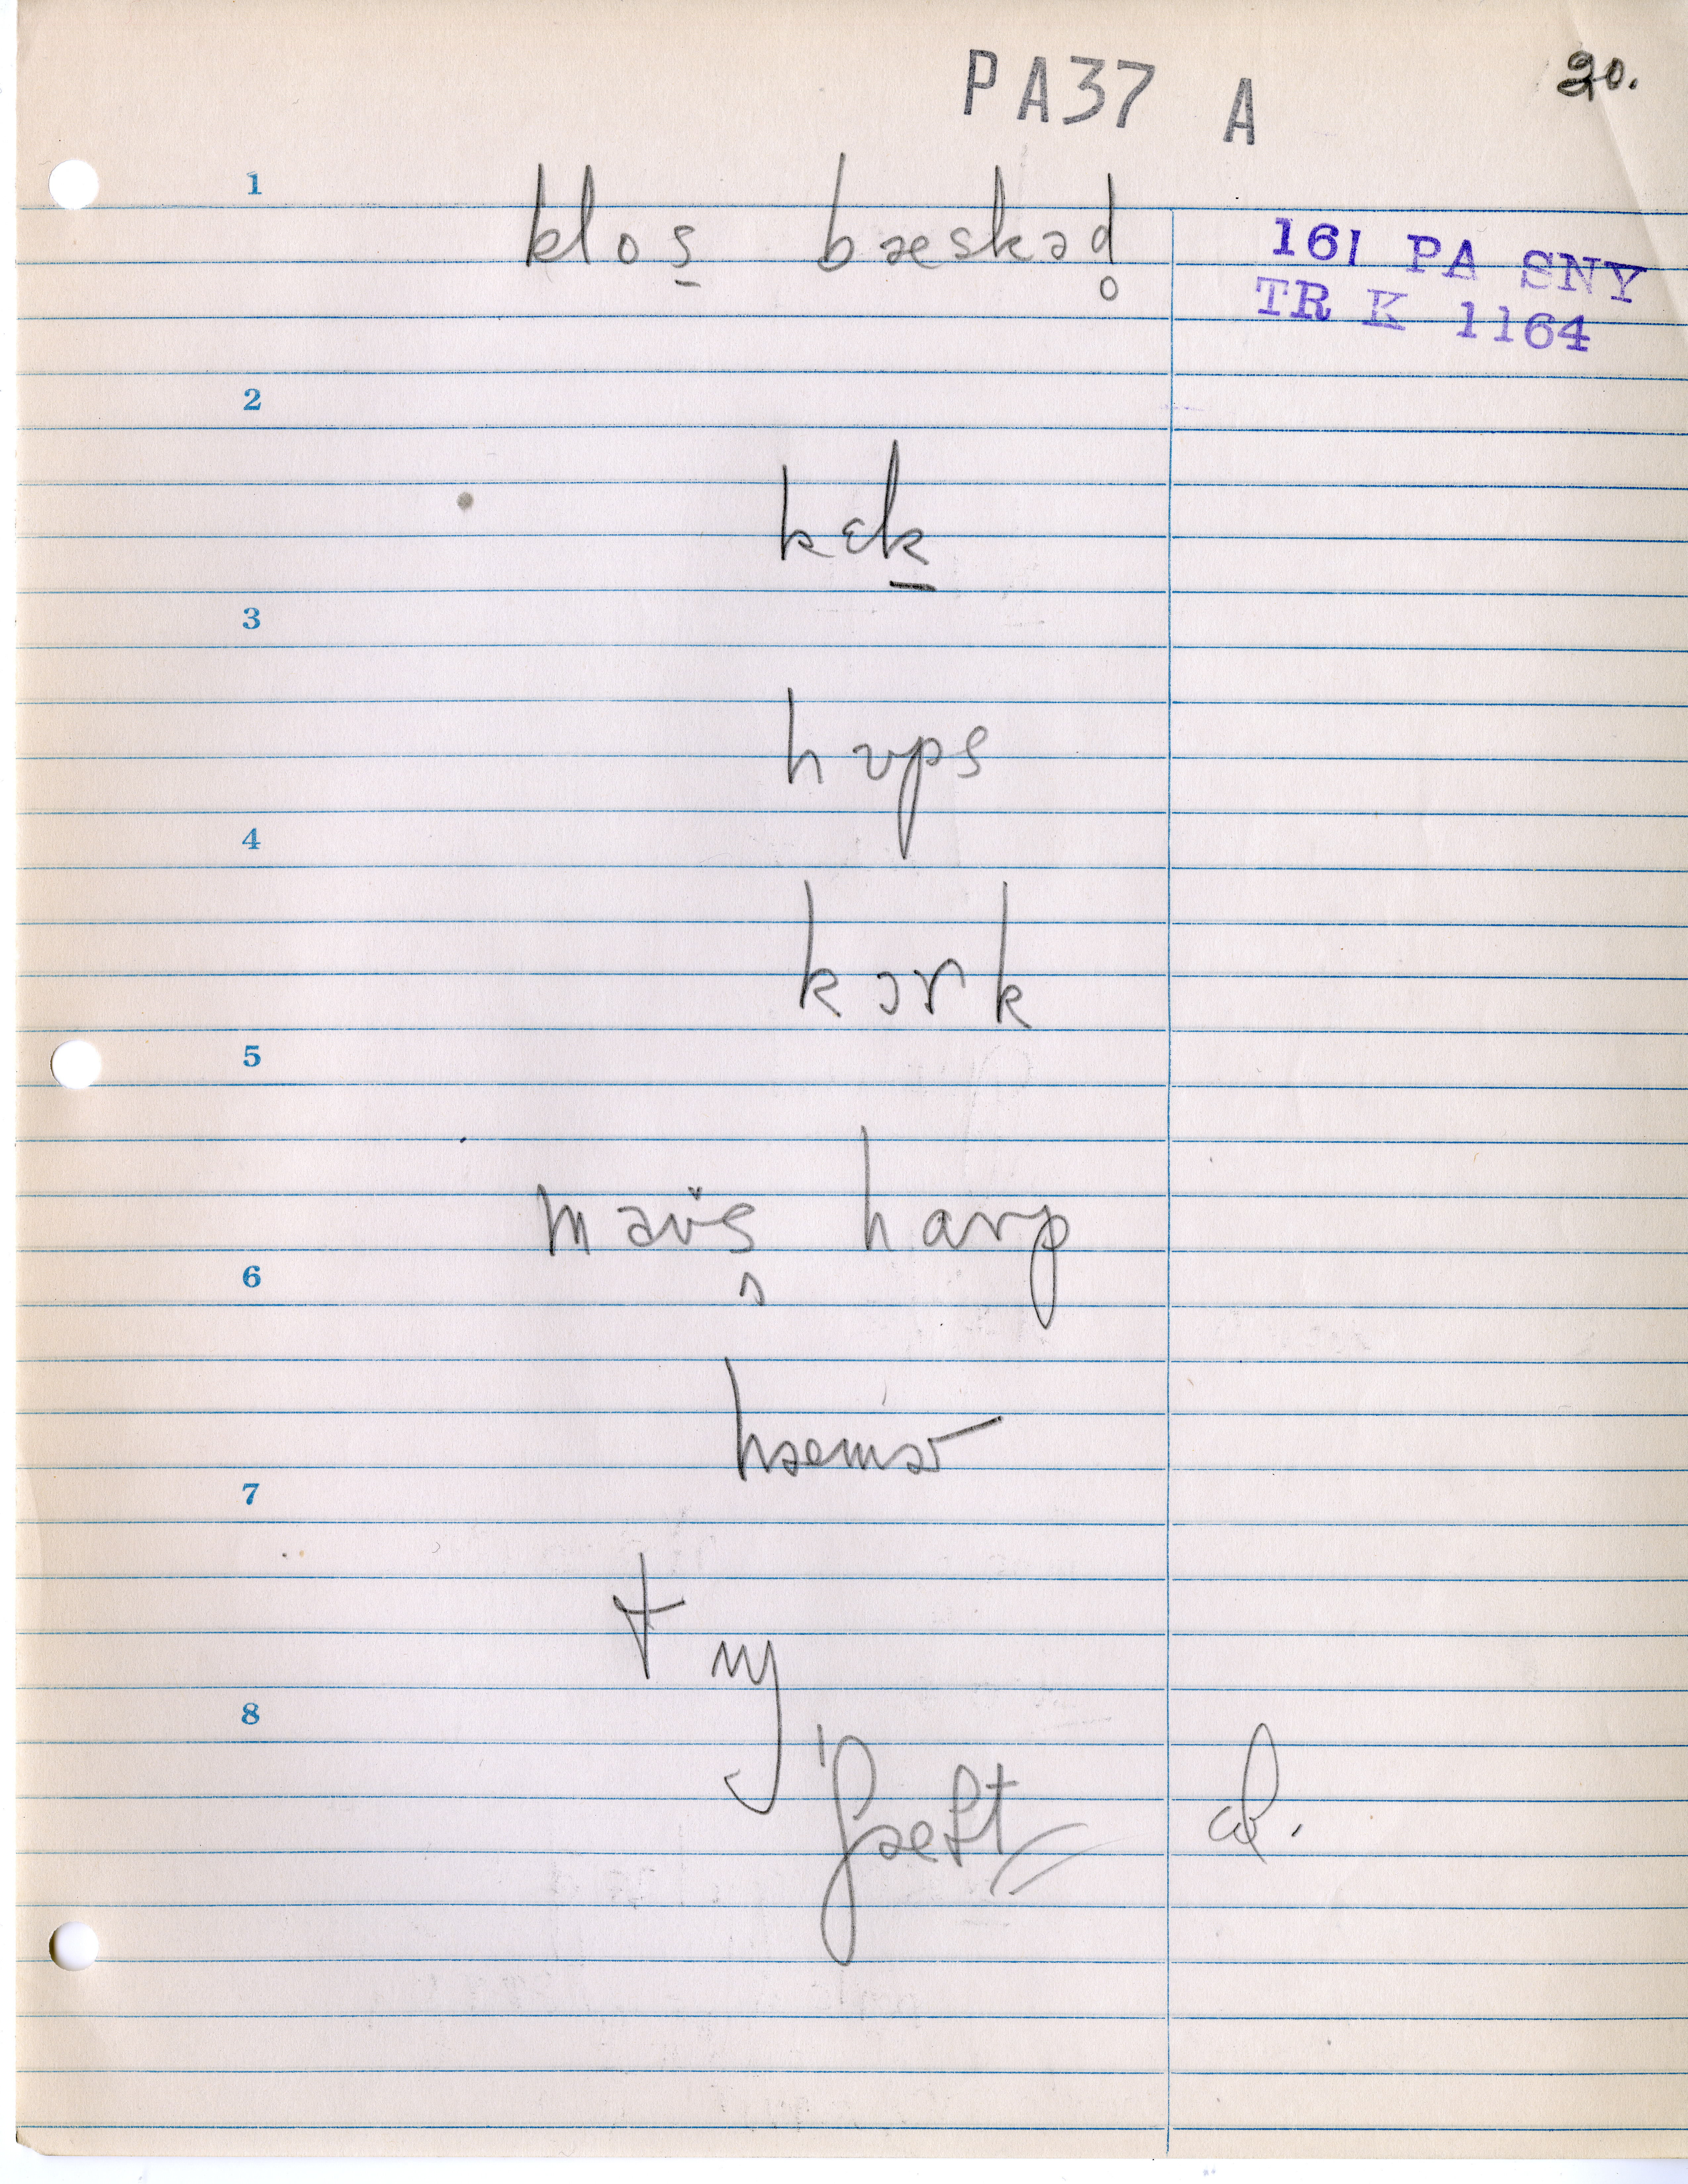 PA37 A 20.
1 klos̱ bæskəd̥
161 PA SNY
TR K 1164
2
kɛḵ
3
hʊps
4
kɔrk
5
maʊ̈s harp
6
hæmɚ
7
†
8
al.